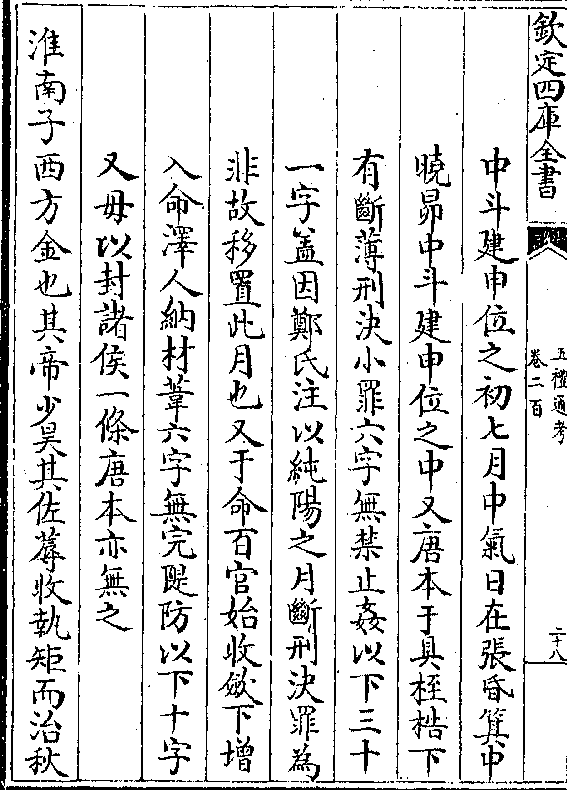 欽定四庫全書
五禮通考
卷二百
二十八
中斗建申位之初七月中氣日在張昏箕中
曉昴中斗建申位之中又唐本于具桎梏下
有斷薄刑決小罪六字無禁止姦以下三十
一字盖因鄭氏注以純陽之月斷刑決罪為
非故移置此月也又于命百官始收斂下增
入命澤人納材葦六字無完隄防以下十字
又毋以封諸侯一條唐本亦無之
淮南子西方金也其帝少昊其佐蓐收執矩而治秋